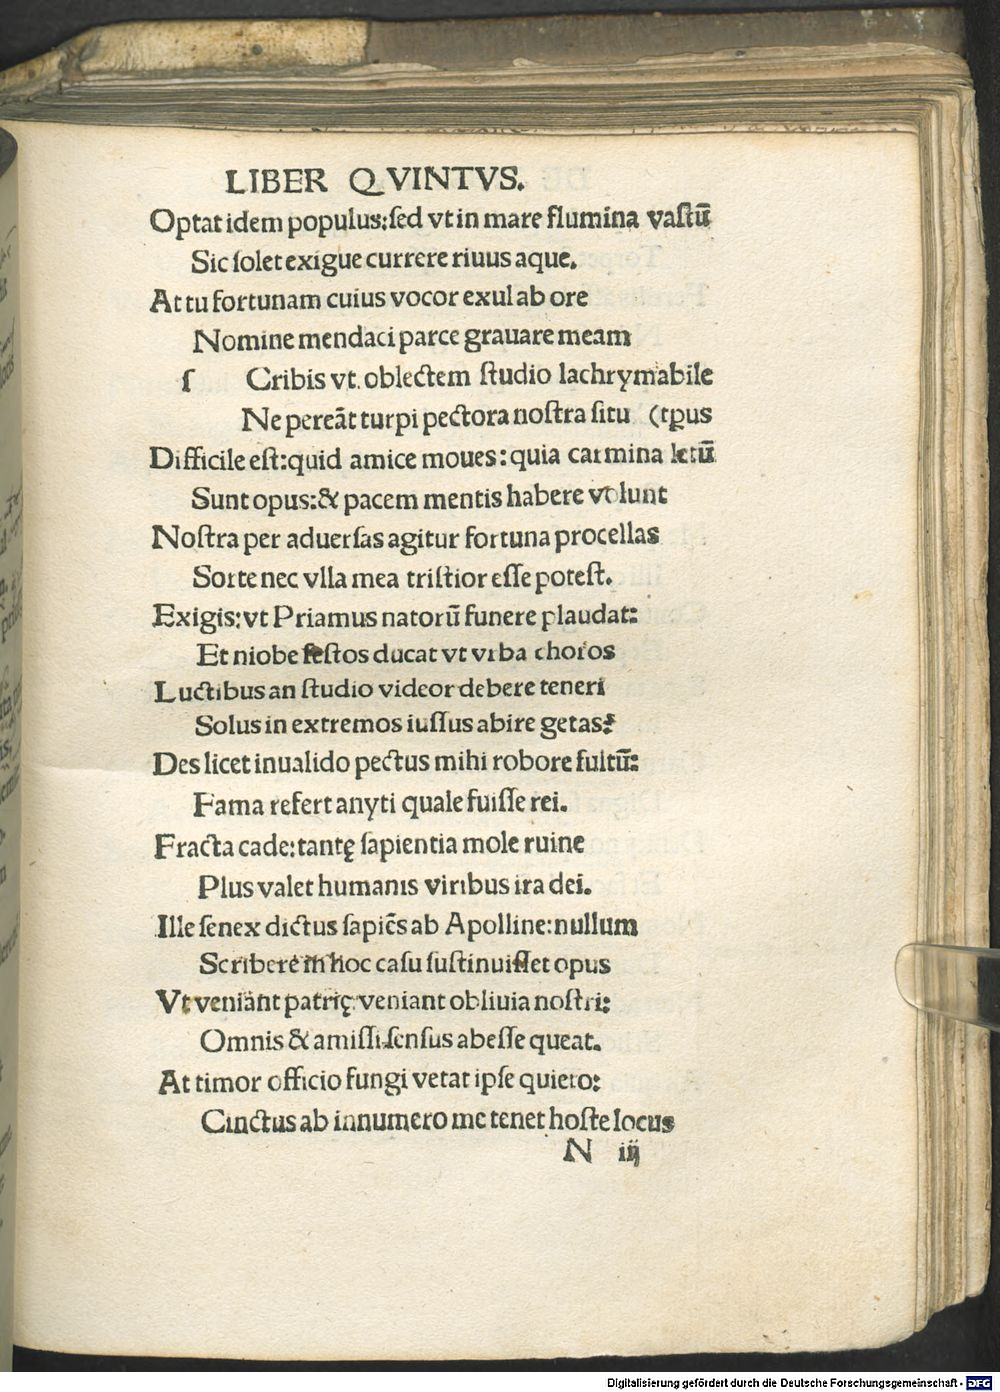 LIBER QVINTVS.
Optat idem populus:ſed vt in mare flumina vaſtū
Sic ſolet exigue currere riuus aque.
At tu fortunam cuius vocor exul ab ore
Nomine mendaci parce grauare meam
ſ Cribis vt oblectem ſtudio lachrymabile
Ne pereāt turpi pectora noſtra ſitu (tp̄us
Difficile eſt:quid amice moues:quia carmina letū
Sunt opus:& pacem mentis habere volunt
Noſtra per aduerſas agitur fortuna procellas
Sorte nec vlla mea triſtior eſſe poteſt.
Exigis:vt Priamus natorū funere plaudat:
Et niobe feſtos ducat vt vrba choros
Luctibus an ſtudio videor debere teneri
Solus in extremos iuſſus abire getas?
Des licet inualido pectus mihi robore fultū:
Fama refert anyti quale fuiſſe rei.
Fracta cade:tantę ſapientia mole ruine
Plus valet humanis viribus ira dei.
Ille ſenex dictus ſapiēs ab Apolline:nullum
Scribere in hoc caſu ſuſtinuiſſet opus
Vt veniant patrię veniant obliuia noſtri:
Omnis & amiſſi ſenſus abeſſe queat.
At timor officio fungi vetat ipſe quieto:
Cinctus ab innumero me tenet hoſte locus
N iij
Digitalisierung gefördert durch die Deutsche Forschungsgemeinschaft - DFG